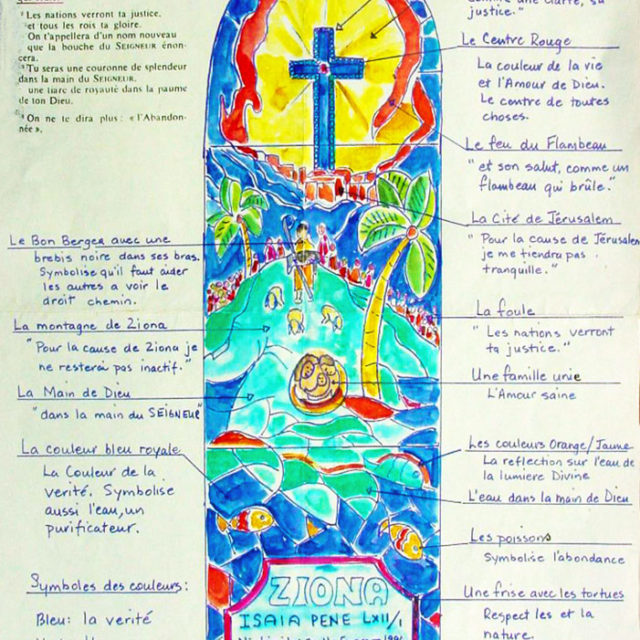 ¹Les nations verront ta justice,
et tous les rois ta gloire.
On t'appellera d'un nom nouveau
que la bouche du SEIGNEUR énon-
cera.
³Tu seras une couronne de splendeur
dans la main du SEIGNEUR,
une tiare de royauté dans la paume
de ton Dieu.
⁴On ne te dira plus : « l'Abandon-
née »,
Le Bon Berger avec une
brebis noire dans ses bras.
Symbolise qu'il faut aider
les autres a voir le
droit chemin.
La montagne de Ziona
"Pour la cause de Ziona je
ne resterai pas inactif."
La Main de Dieu
"dans la main du SEIGNEUR"
La couleur bleu royale
La Couleur de la
verité. Symbolise
aussi l'eau, un
purificateur.
Symboles des couleurs:
Bleu: la verité
justice."
Le Centre Rouge
La couleur de la vie
et l'Amour de Dieu.
Le centre de toutes
choses.
Le feu du Flambeau
"et son salut, comme un
flambeau qui brûle."
La Cité de Jérusalem
"Pour la cause de Jérusalem
je me tiendra pas
tranquille."
La foule
"Les nations verront
ta justice."
Une famille unie
L'Amour saine
Les couleurs Orange/Jaune
La reflection sur l'eau de
la lumiere Divine
L'eau dans la main de Dieu
Les poissons
Symbolise l'abondance
Une frise avec les tortues
Respect les et la
nature.
ZIONA
ISAIA PENE LXII/1